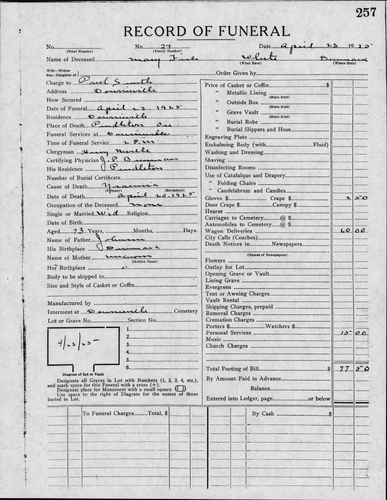 257
RECORD OF FUNERAL
No. No. 27 Date April 22 1925
(Total Number) (Yearly Number)
Name of Deceased Mary White Denmark
(What Race) (Where Born)
Wife—Widow
Son—Daughter of Order Given by
Charge to Paul Smith
Address Downieville
How Secured
Date of Funeral April 22 1925
Residence Downieville
Place of Death Pendleton Ore
Funeral Services at Downieville
Time of Funeral Service 2 P.M.
Clergyman Henry
Certifying Physician J. P.
His Residence Pendleton
Number of Burial Certificate
Cause of Death
(Primary) (Secondary)
Date of Death April 20, 1925
Occupation of the Deceased None
Single or Married Wid Religion
Date of Birth
Aged 73 Years, Months, Days.
Name of Father
His Birthplace Denmark
Name of Mother
(Maiden Name)
Her Birthplace "
Body to be shipped to
Size and Style of Casket or Coffin
Manufactured by
Interment at Downieville Cemetery
Lot or Grave No. Section No.
1.
2.
3.
4.
5.
6.
4/22/25
Diagram of Lot or Vault
Designate all Graves in Lot with Numbers (1, 2, 3, 4, etc.),
and mark space for this Funeral with a cross (+).
Designate place for Monument with a small square (□)
Use space to the right of Diagram for the names of those
buried in Lot.
Price of Casket or Coffin $
" Metallic Lining
(State Kind)
" Outside Box
(State Kind)
" Grave Vault
(State Kind)
" Burial Robe
(State Kind)
" Burial Slippers and Hose
Engraving Plate
Embalming Body (with Fluid)
Washing and Dressing
Shaving
Disinfecting Rooms
Use of Catafalque and Drapery
" Folding Chairs
" Candelabrum and Candles
Gloves $ Crape $ 2 50
Door Crape $ Candy $
Hearse
Carriages to Cemetery @ $
Automobiles to Cemetery @ $
Wagon Deliveries 60 00
City Calls (Coaches)
Death Notices in Newspapers
(Names of Newspapers)
Flowers
Outlay for Lot
Opening Grave or Vault
Lining Grave
Evergreen
Tent or Awning Charges
Vault Rental
Shipping Charges, prepaid
Removal Charges
Cremation Charges
Porters $ Watchers $
Personal Services 15 00
Music
Church Charges
Total Footing of Bill $ 77 50
By Amount Paid in Advance
Balance
Entered into Ledger, page or below.
To Funeral Charges Total, $ By Cash $